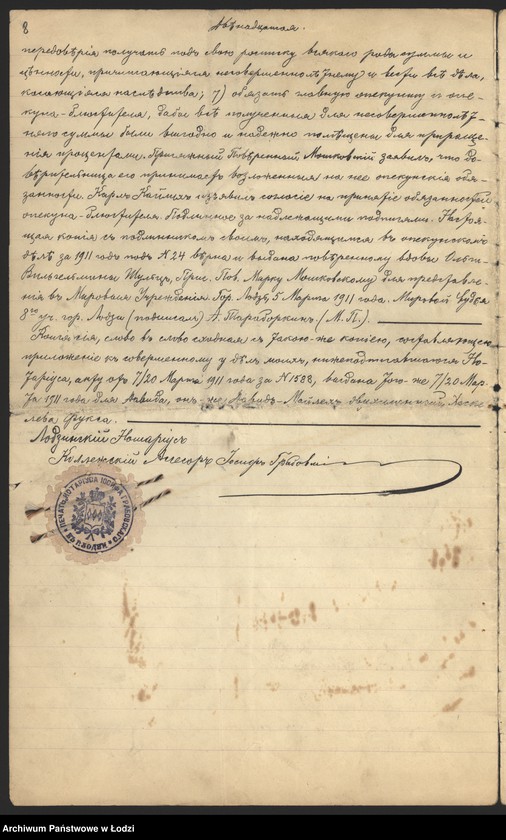 8
Двѣнадцатая.
передовѣрія получать подъ свою росписку всякаго рода суммы и
цѣнности, причитающіяся несовершеннолѣтнему и вести всѣ дѣла,
касающіяся наслѣдства; 7) обязать главную опекуншу и опе-
куна-блюстителя, дабы всѣ полученныя для несовершеннолѣт-
няго суммы были выгодно и надежно помѣщены для прираще-
нія процентами. Присяжный Повѣренный Мошковскій заявилъ, что до-
вѣрительница его принимаетъ возложенныя на нее опекунскія обя-
занности. Карлъ изъявилъ согласіе на принятіе обязанностей
опекуна-блюстителя. Подлинное за надлежащими подписями. Настоя-
щая копія съ подлинникомъ своимъ, находящимся въ опекунскомъ
дѣлѣ за 1911 годъ подъ N. 24 вѣрна и выдана повѣренному вдовы
Вильгельмины Шульцъ, Прис. Пов. Марку Мошковскому для представле-
нія въ Мировыя Учрежденія Гор. Лодзь, 5 Марта 1911 года. Мировой Судья
8го уч. гор. Лодзи (подписалъ) А. (М. П.).
Копія сія, слово въ слово сходная съ таковою-же копіею, составляющею
приложеніе къ совершенному у дѣлъ моихъ, нижеподписавшагося Но-
таріуса, акту отъ 7/20 Марта 1911 года за N 1588, выдана того-же 7/20 Мар-
та 1911 года для Давида, онъ-же Давидъ-Майлехъ
лева Фукса.
Лодзинскій Нотаріусъ
Коллежскій Асесоръ Іосифъ Грабовскій
ПЕЧАТЬ НОТАРІУСА ІОСИФА ГРАБОВСКАГО
ВЪ Г. ЛОДЗИ
Archiwum Państwowe w Łodzi